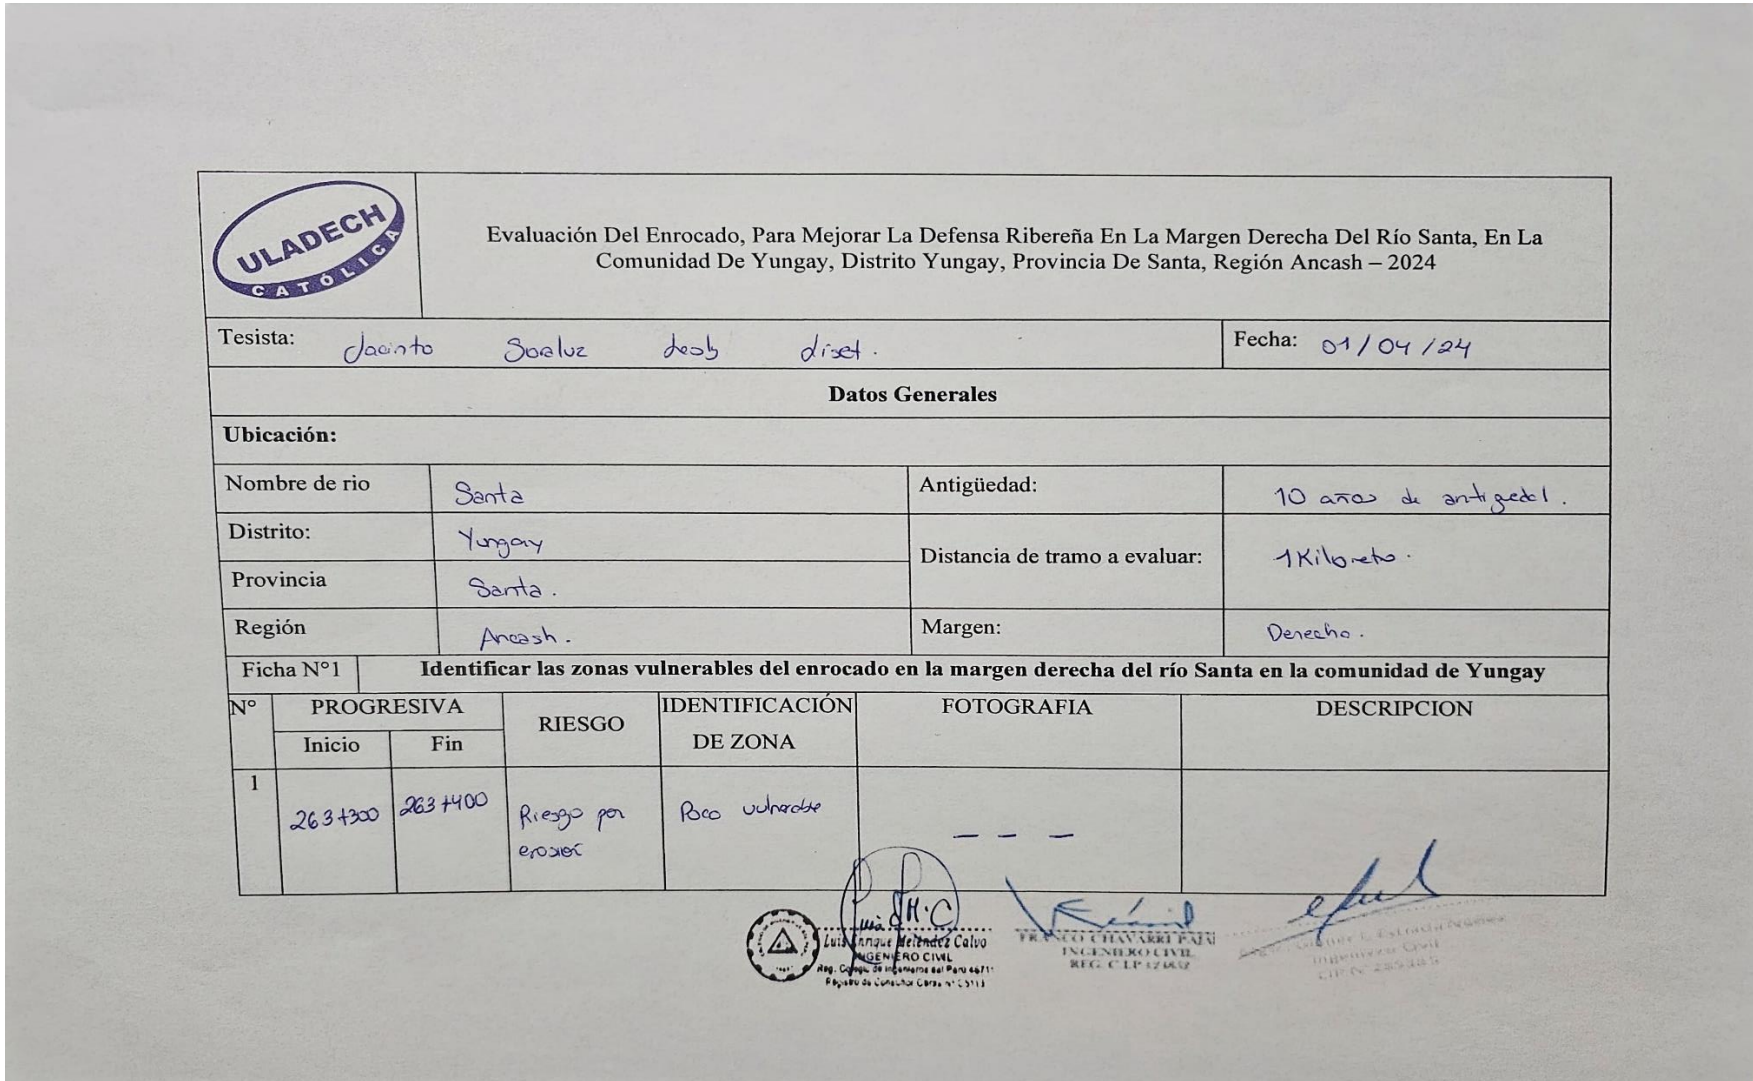 ULADECH
CATÓLICA
Evaluación Del Enrocado, Para Mejorar La Defensa Ribereña En La Margen Derecha Del Río Santa, En La
Comunidad De Yungay, Distrito Yungay, Provincia De Santa, Región Ancash – 2024
Tesista: Jacinto Soraluz Lesly Liset.
Fecha: 01/04/24
Datos Generales
Ubicación:
Nombre de rio Santa
Antigüedad: 10 años de
Distrito: Yungay
Distancia de tramo a evaluar:
Provincia Santa.
Región Ancash.
Margen: Derecho.
Ficha N°1 Identificar las zonas vulnerables del enrocado en la margen derecha del río Santa en la comunidad de Yungay
N° PROGRESIVA RIESGO IDENTIFICACIÓN DE ZONA FOTOGRAFIA DESCRIPCION
Inicio Fin
1 263+300 263+400 Riesgo por Poco vulnerable – – –
Luis Enrique Meléndez Calvo
INGENIERO CIVIL
Reg. Colegio de Ingenieros del Perú
FRANCO CHAVARRI
INGENIERO CIVIL
REG. CIP
Ingeniero Civil